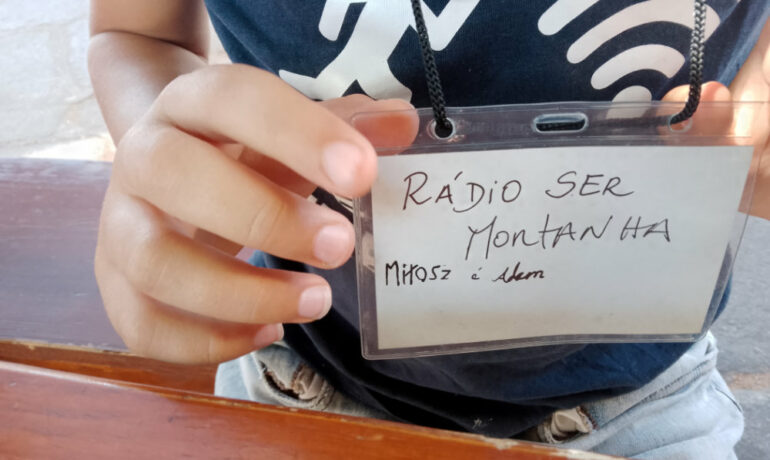 RÁDIO SER
MONTANHA
Miłosz i Adam